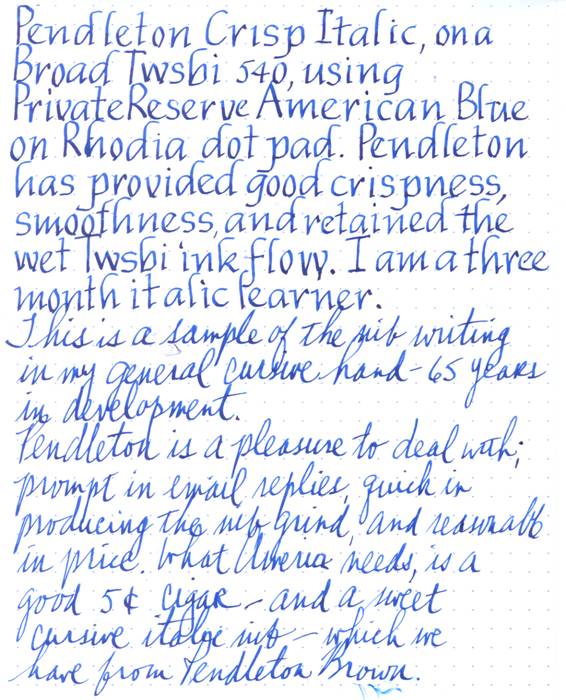 Pendleton Crisp Italic, on a
Broad Twsbi 540, using
Private Reserve American Blue
on Rhodia dot pad. Pendleton
has provided good crispness,
smoothness, and retained the
wet Twsbi ink flow. I am a three
month italic learner.
This is a sample of the nib writing
in my general cursive hand - 65 years
in development.
Pendleton is a pleasure to deal with;
prompt in email replies, quick in
producing the nib grind, and reasonable
in price. What America needs, is a
good 5¢ cigar - and a sweet
cursive italic nib - which we
have from Pendleton Brown.